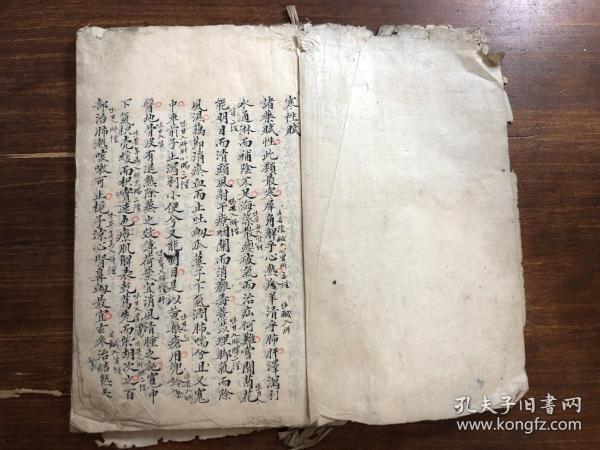 寒性賦
諸藥賦性此類最寒犀角解乎心熱羚羊清乎肺肝澤瀉利
水通淋而補陰不足海藻散癭破氣而治疝何難菊花
能明目而清頭風射干療咽閉而消癰毒薏苡理脚氣而除
風濕藕節消瘀血而止吐衂瓜蔞子下氣潤肺喘兮且又寬
中車前子止瀉利小便兮又能明目是以黃蘗瘡用兜鈴嗽
醫地骨皮有退熱除蒸之效薄荷葉宜消風清腫之施寬中
下氣枳壳緩而枳實速也療肌解表乾葛先而柴胡次之百
部治肺熱咳嗽可止梔子凉心腎鼻衂最宜玄參治結熱
孔夫子旧書网
www.kongfz.com